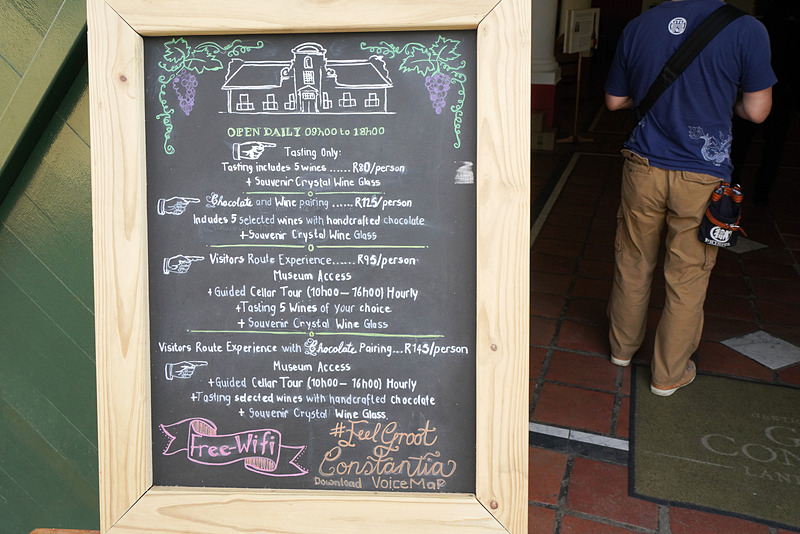 OPEN DAILY 09h00 to 18h00
Tasting Only:
Tasting includes 5 wines ...... R80/person
+ Souvenir Crystal Wine Glass
Chocolate and Wine pairing ...... R125/person
Includes 5 selected wines with handcrafted chocolate
+ Souvenir Crystal Wine Glass
Visitors Route Experience...... R95/person
Museum Access
+Guided Cellar Tour (10h00 – 16h00) Hourly
+Tasting 5 Wines of your choice
+ Souvenir Crystal Wine Glass
Visitors Route Experience with Chocolate Pairing...R145/person
Museum Access
+Guided Cellar Tour (10h00 – 16h00) Hourly
+Tasting selected wines with handcrafted chocolate
+ Souvenir Crystal Wine Glass.
Free-Wifi
#FeelGroot
Constantia
Download VoiceMap